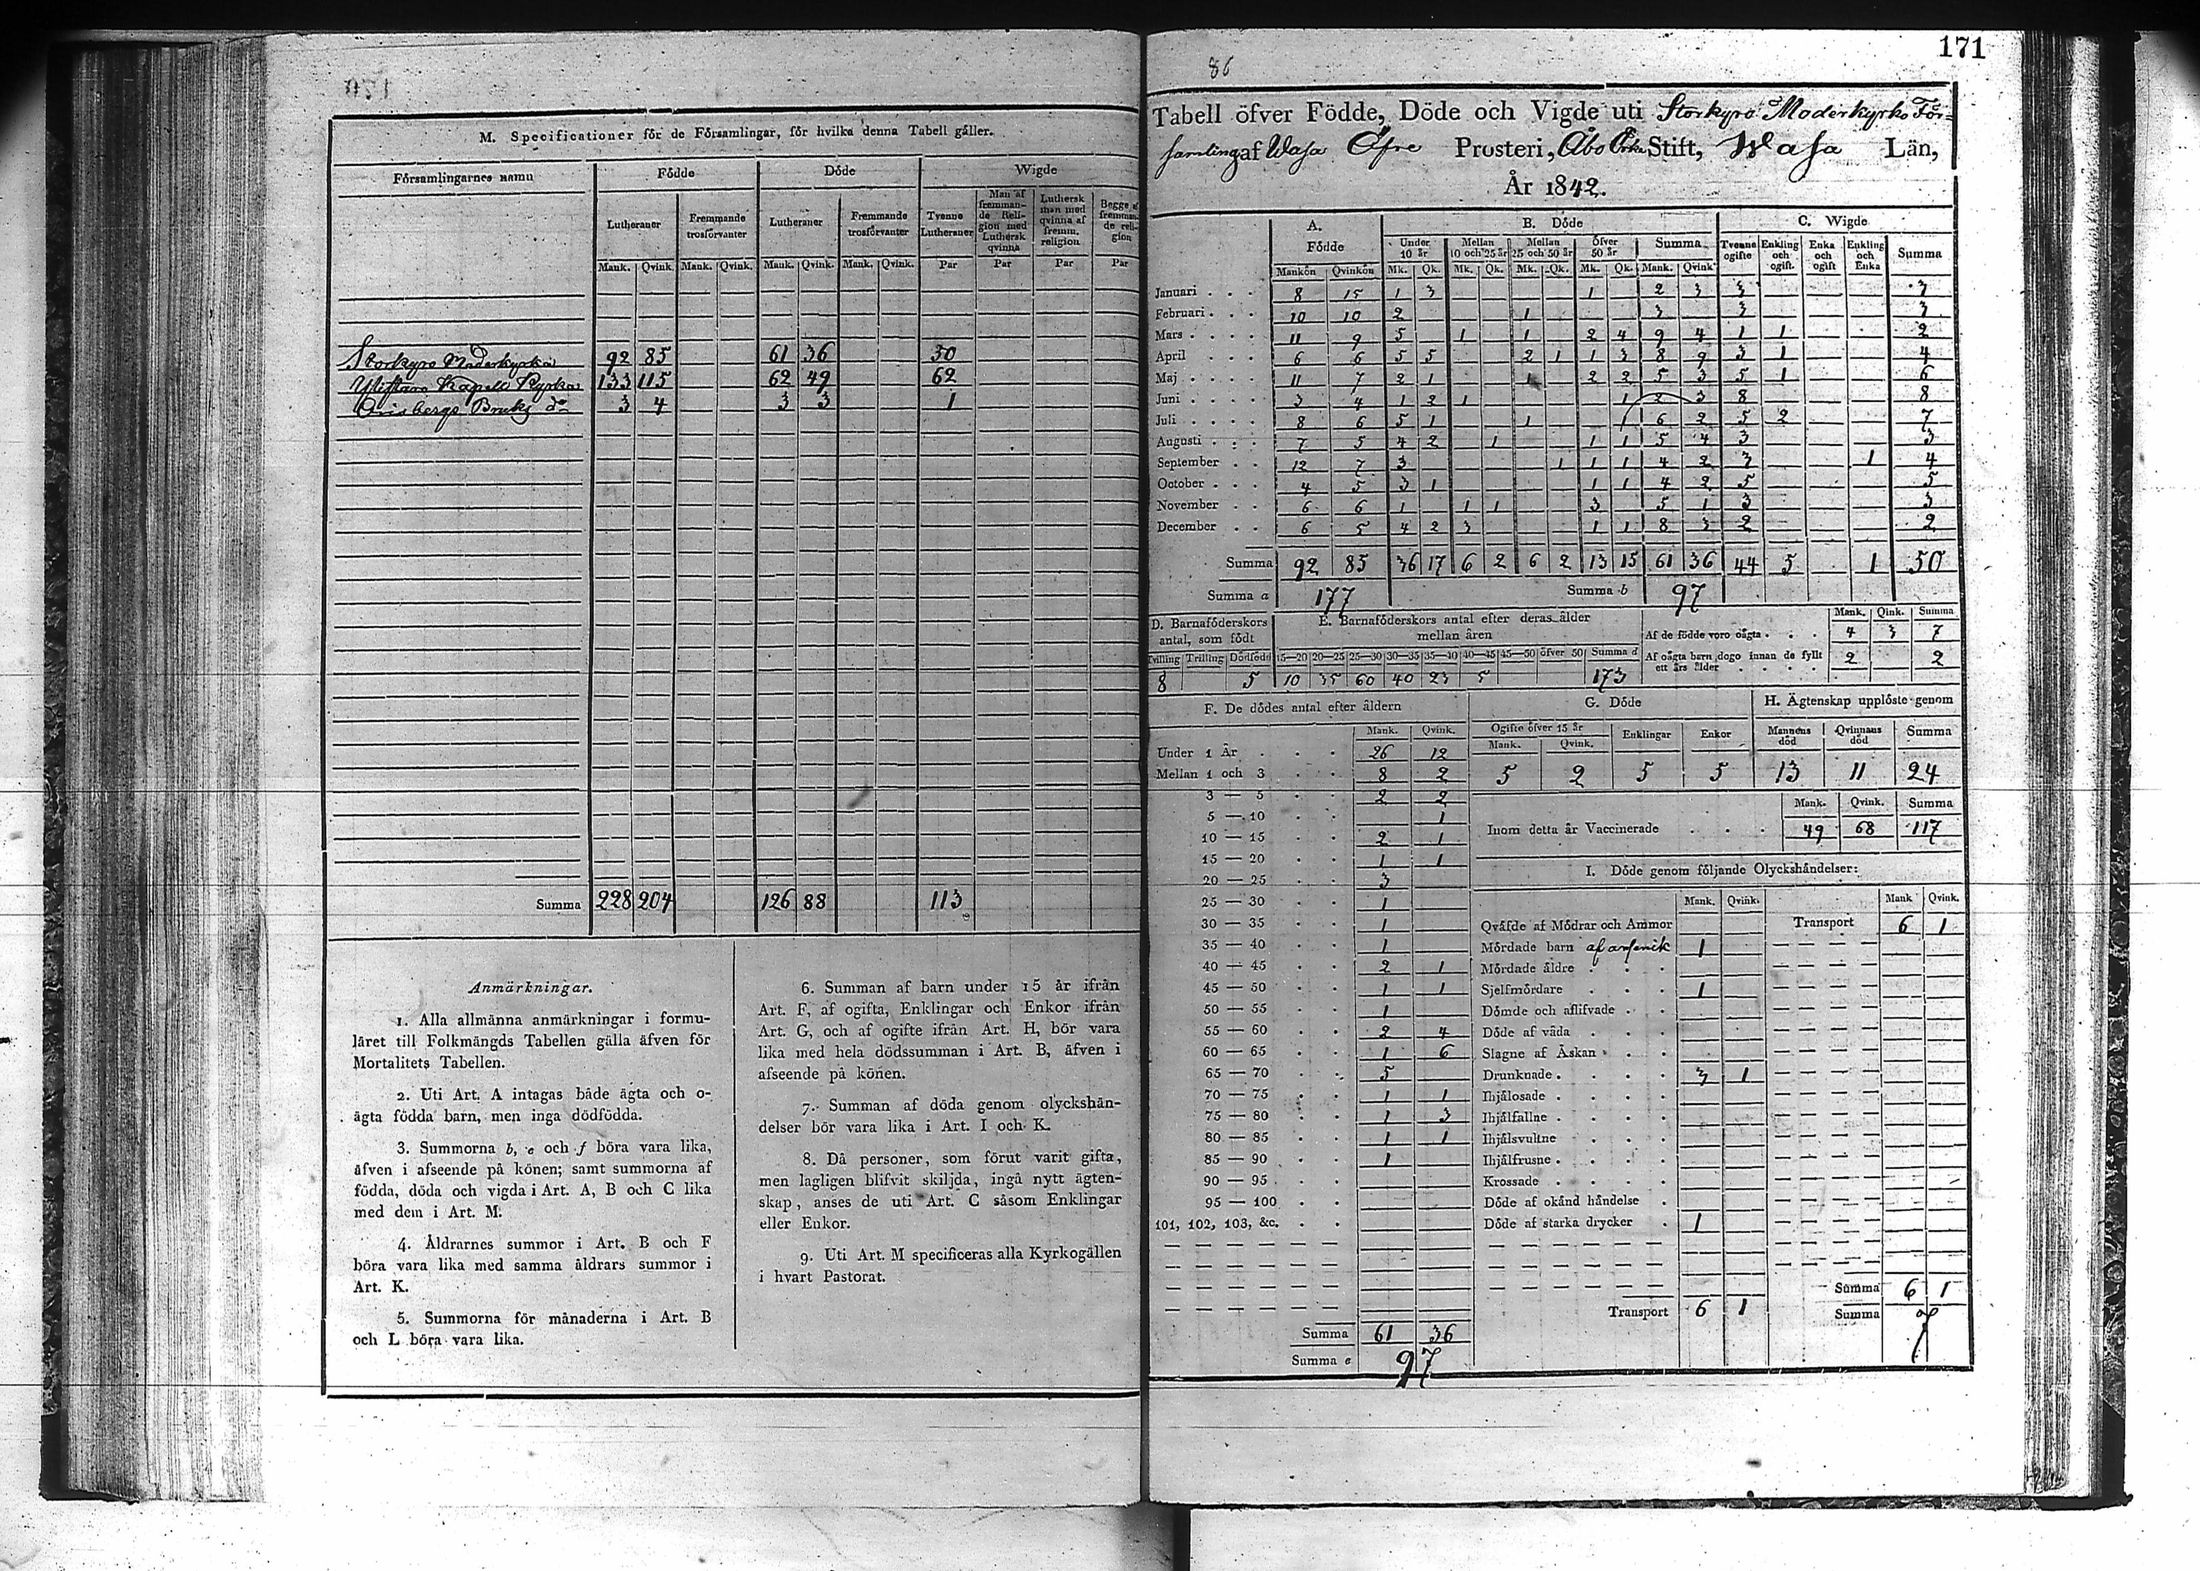 170
M. Specificationer för de Församlingar, för hvilka denna Tabell gäller.
Församlingarnes namn | Födde | Döde | Wigde
Lutheraner | Fremmande trosförvanter | Lutheraner | Fremmande trosförvanter | Tvenne Lutheraner | Man af fremmande Religion med Luthersk qvinna | Luthersk man med qvinna af fremm. religion | Begge af fremmande religion
Mank. | Qvink. | Mank. | Qvink. | Mank. | Qvink. | Mank. | Qvink. | Par | Par | Par | Par
Storkyro Moderkyrka 92 85 61 36 50
Ylistaro Kapell Kyrka 133 115 62 49 62
Orisbergs Bruks do 3 4 3 3 1
Summa 228 204 126 88 113
Anmärkningar.
1. Alla allmänna anmärkningar i formu-
läret till Folkmängds Tabellen gälla äfven för
Mortalitets Tabellen.
2. Uti Art. A intagas både ägta och o-
ägta födda barn, men inga dödfödda.
3. Summorna b, e och f böra vara lika,
äfven i afseende på könen; samt summorna af
födda, döda och vigda i Art. A, B och C lika
med dem i Art. M.
4. Åldrarnes summor i Art. B och F
böra vara lika med samma åldrars summor i
Art. K.
5. Summorna för månaderna i Art. B
och L böra vara lika.
6. Summan af barn under 15 år ifrån
Art. F, af ogifta, Enklingar och Enkor ifrån
Art. G, och af ogifte ifrån Art. H, bör vara
lika med hela dödssumman i Art. B, äfven i
afseende på könen.
7. Summan af döda genom olyckshän-
delser bör vara lika i Art. I och K.
8. Då personer, som förut varit gifta,
men lagligen blifvit skiljda, ingå nytt ägten-
skap, anses de uti Art. C såsom Enklingar
eller Enkor.
9. Uti Art. M specificeras alla Kyrkogällen
i hvart Pastorat.
86
171
Tabell öfver Födde, Döde och Vigde uti Storkyro Moderkyrko För-
samling af Wasa Öfre Prosteri, Åbo Ärke Stift, Wasa Län,
År 1842.
A. Födde | B. Döde | C. Wigde
Mankön | Qvinkön | Under 10 år | Mellan 10 och 25 år | Mellan 25 och 50 år | Öfver 50 år | Summa | Tvenne ogifte | Enkling och ogift. | Enka och ogift | Enkling och Enka | Summa
Mk. | Qk. | Mk. | Qk. | Mk. | Qk. | Mk. | Qk. | Mank. | Qvink
Januari 8 15 1 3 1 2 3 3 3
Februari 10 10 2 1 3 3 3
Mars 11 9 5 1 1 2 4 9 4 1 1 2
April 6 6 5 5 2 1 1 3 8 9 3 1 4
Maj 11 7 2 1 1 2 2 5 3 5 1 6
Juni 3 4 1 2 1 1 2 3 8 8
Juli 8 6 5 1 1 1 6 2 5 2 7
Augusti 7 5 4 2 1 1 1 5 4 3 3
September 12 7 3 1 1 1 4 2 3 1 4
October 4 5 3 1 1 1 4 2 5 5
November 6 6 1 1 1 3 5 1 3 3
December 6 5 4 2 3 1 1 8 3 2 2
Summa 92 85 36 17 6 2 6 2 13 15 61 36 44 5 1 50
Summa a 177 Summa b 97
D. Barnaföderskors antal, som födt
Tvilling | Trilling | Dödfödd
8 5
E. Barnaföderskors antal efter deras ålder mellan åren
15—20 | 20—25 | 25—30 | 30—35 | 35—40 | 40—45 | 45—50 | öfver 50 | Summa d
10 35 60 40 23 5 173
Mank. | Qink. | Summa
Af de födde voro oägta 4 3 7
Af oägta barn dogo innan de fyllt ett års ålder 2 2
F. De dödes antal efter åldern
Mank. | Qvink.
Under 1 År 26 12
Mellan 1 och 3 8 2
3 — 5 2 2
5 — 10 1
10 — 15 2 1
15 — 20 1 1
20 — 25 3
25 — 30 1
30 — 35 1
35 — 40 1
40 — 45 2 1
45 — 50 1 1
50 — 55 1
55 — 60 2 4
60 — 65 1 6
65 — 70 5
70 — 75 1 1
75 — 80 1 3
80 — 85 1 1
85 — 90 1
90 — 95
95 — 100
101, 102, 103, &c.
Summa 61 36
Summa e 97
G. Döde
Ogifte öfver 15 år | Enklingar | Enkor
Mank. | Qvink.
5 2 5 5
H. Ägtenskap upplöste genom
Mannens död | Qvinnans död | Summa
13 11 24
Mank. | Qvink. | Summa
Inom detta år Vaccinerade 49 68 117
I. Döde genom följande Olyckshändelser:
Mank. | Qvink. | Mank | Qvink.
Qväfde af Mödrar och Ammor
Transport 6 1
Mördade barn af arsenik 1
Mördade äldre
Sjelfmördare 1
Dömde och aflifvade
Döde af våda
Slagne af Åskan
Drunknade 3 1
Ihjälosade
Ihjälfallne
Ihjälsvultne
Ihjälfrusne
Krossade
Döde af okänd händelse
Döde af starka drycker 1
Summa 6 1
Transport 6 1
Summa 7